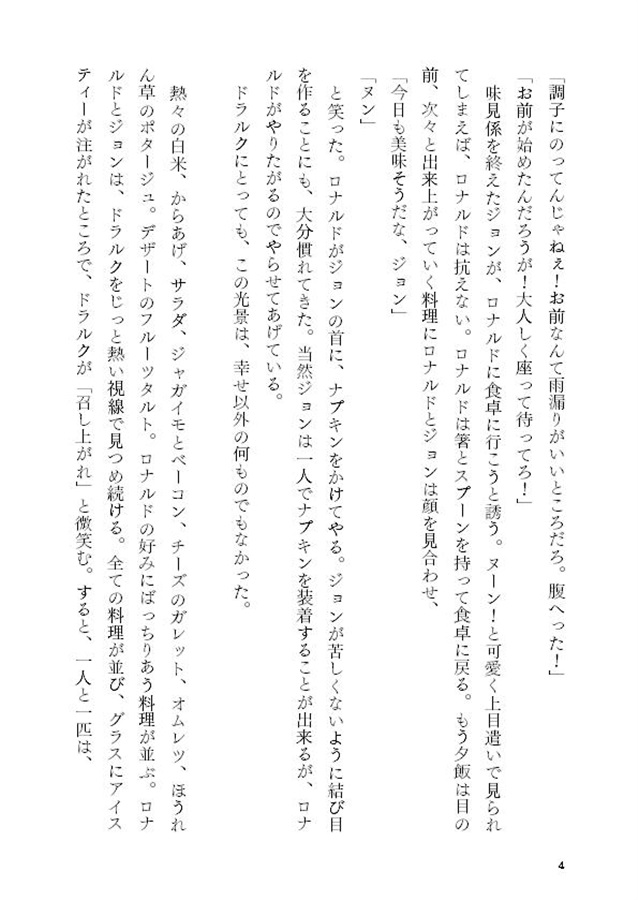 「調子にのってんじゃねぇ！お前なんて雨漏りがいいところだろ。腹へった！」
「お前が始めたんだろうが！大人しく座って待ってろ！」
　味見係を終えたジョンが、ロナルドに食卓に行こうと誘う。ヌーン！と可愛く上目遣いで見られ
てしまえば、ロナルドは抗えない。ロナルドは箸とスプーンを持って食卓に戻る。もう夕飯は目の
前、次々と出来上がっていく料理にロナルドとジョンは顔を見合わせ、
「今日も美味そうだな、ジョン」
「ヌン」
　と笑った。ロナルドがジョンの首に、ナプキンをかけてやる。ジョンが苦しくないように結び目
を作ることにも、大分慣れてきた。当然ジョンは一人でナプキンを装着することが出来るが、ロナ
ルドがやりたがるのでやらせてあげている。
　ドラルクにとっても、この光景は、幸せ以外の何ものでもなかった。
　熱々の白米、からあげ、サラダ、ジャガイモとベーコン、チーズのガレット、オムレツ、ほうれ
ん草のポタージュ。デザートのフルーツタルト。ロナルドの好みにばっちりあう料理が並ぶ。ロナ
ルドとジョンは、ドラルクをじっと熱い視線で見つめ続ける。全ての料理が並び、グラスにアイス
ティーが注がれたところで、ドラルクが「召し上がれ」と微笑む。すると、一人と一匹は、
4